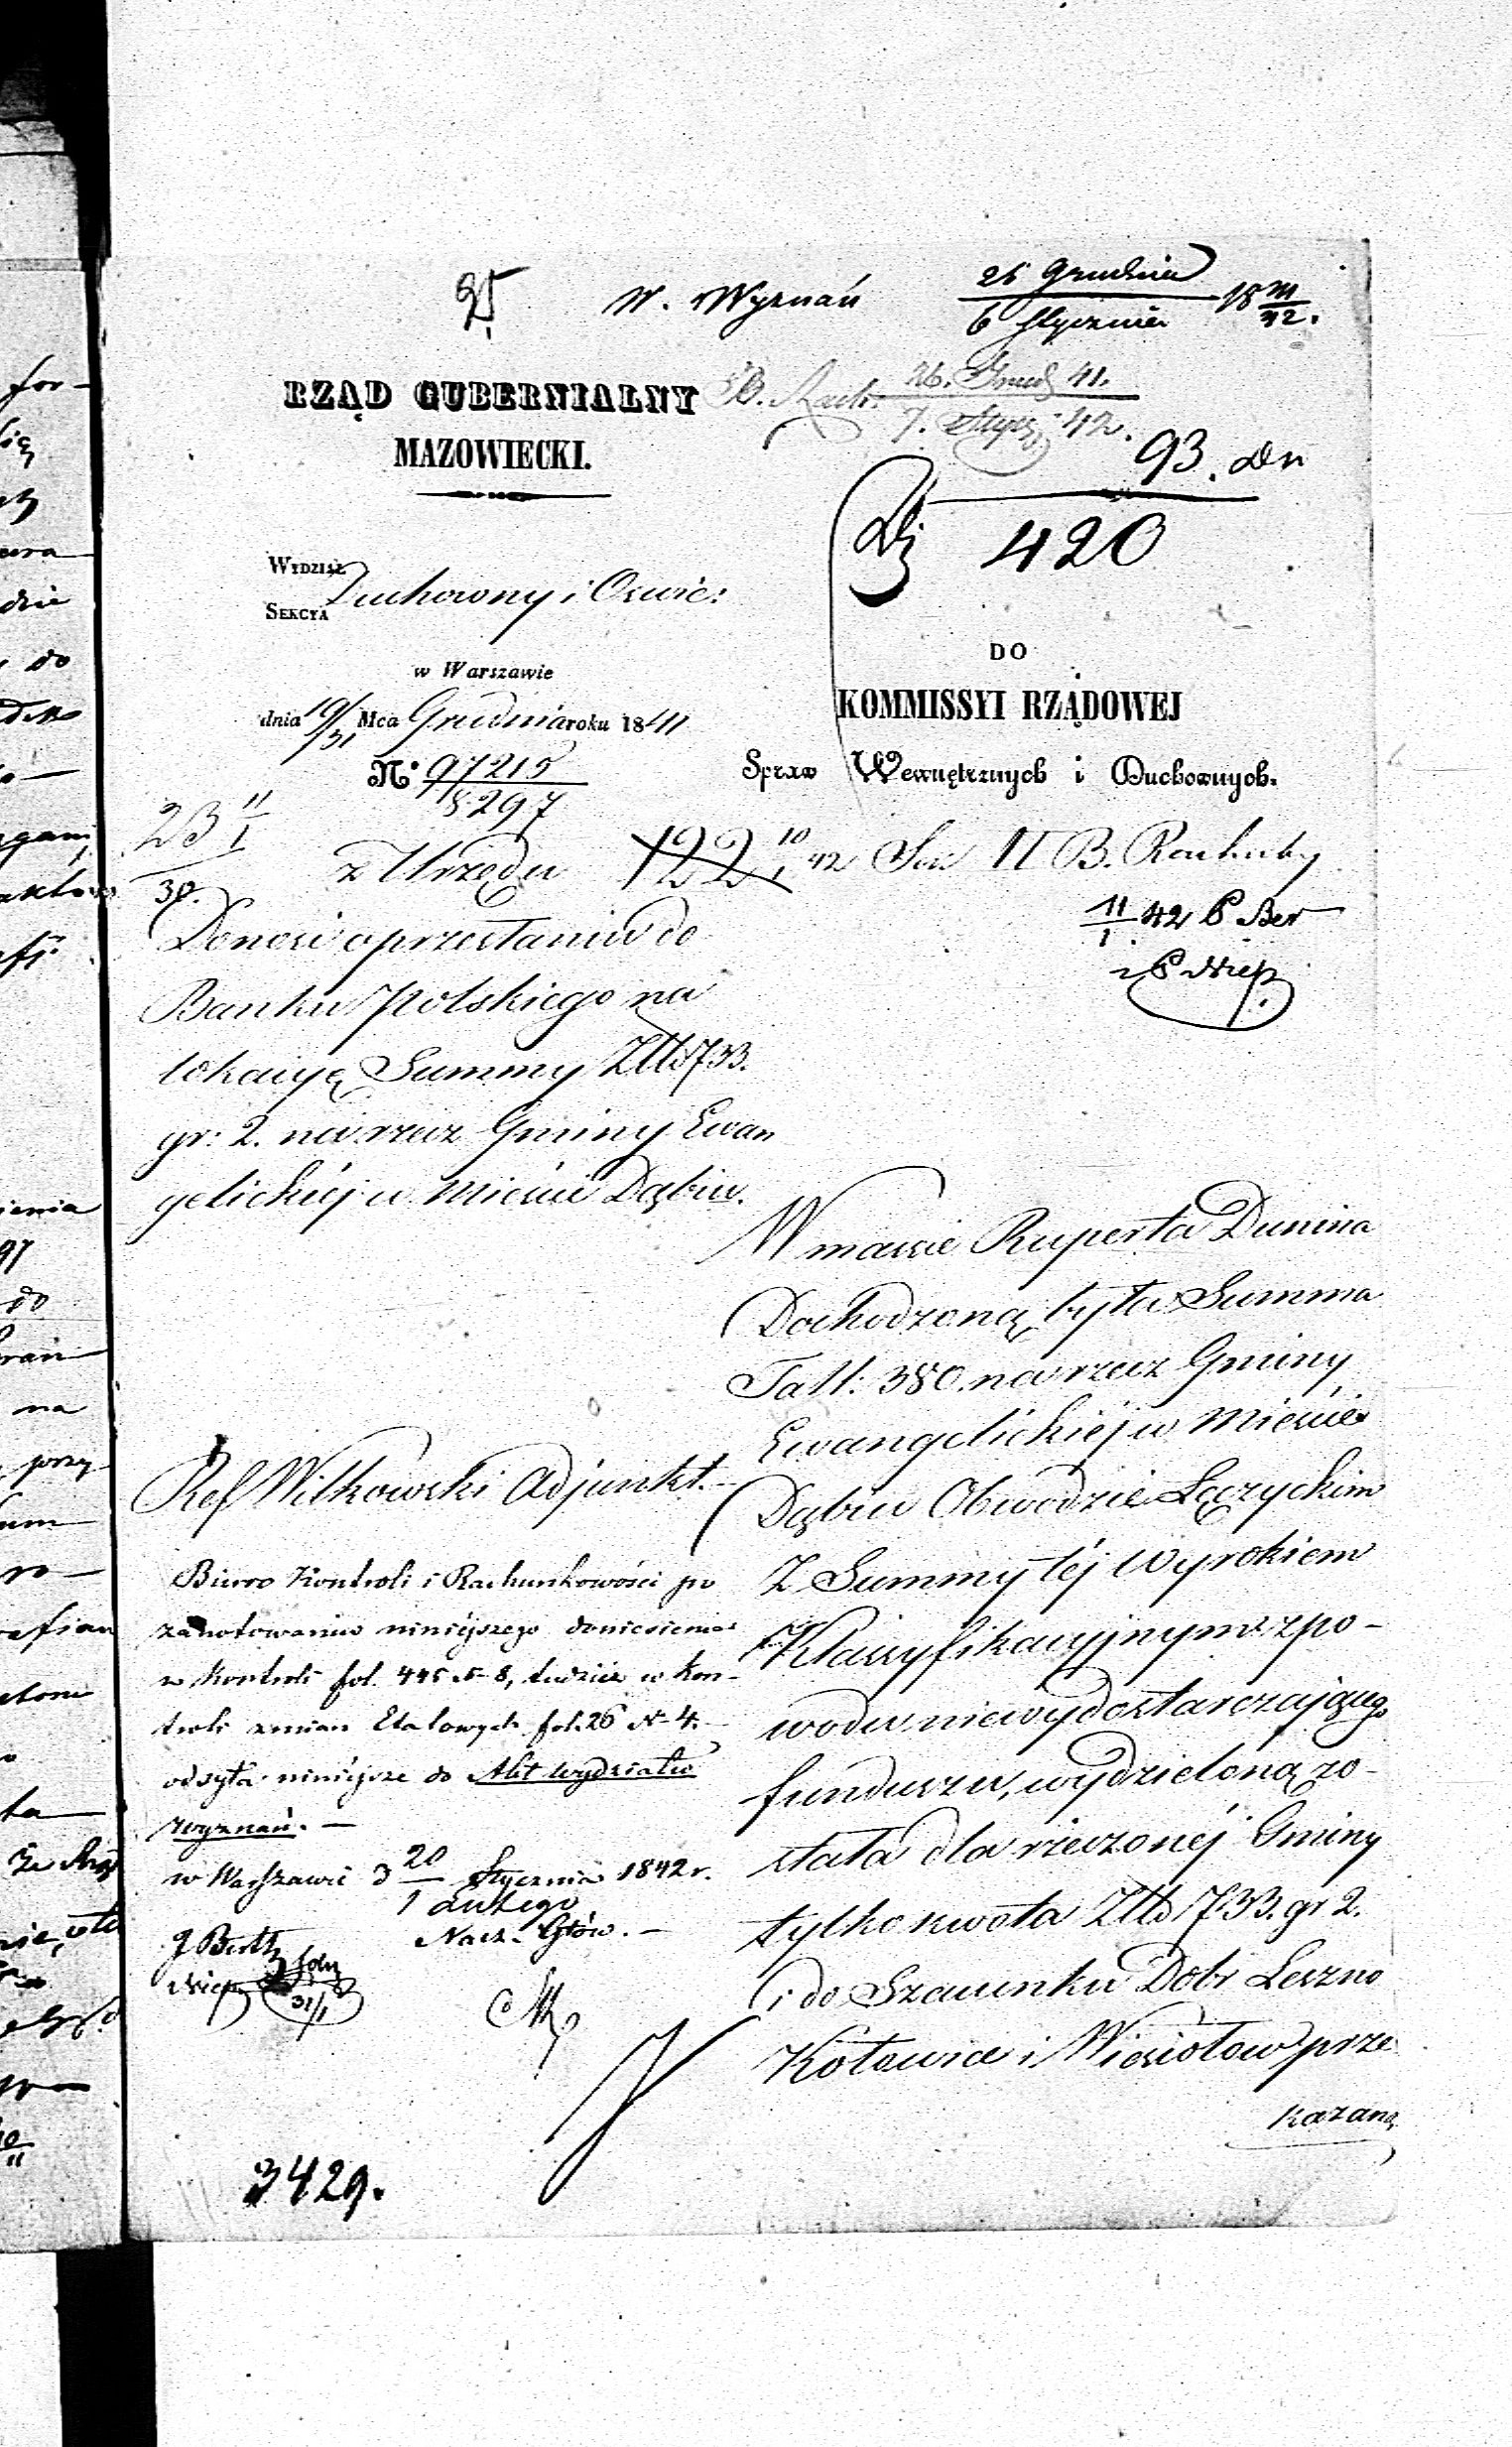 W. Wyznań
25 Grudnia
6 Stycznia
18 41/42.
RZĄD GUBERNIALNY
MAZOWIECKI.
B. Rach: 26. Grud 41.
7. Stycz: 42.
93. Dn
420
WYDZIAŁ
Duchowny i Oświe:
SEKCYA
w Warszawie
dnia 19/31 Mca Grudnia roku 1841
N: 97215
8297
DO
KOMMISSYI RZĄDOWEJ
Spraw Wewnętrznych i Duchownych.
23 11/1
30.
z Urzędu
122 10/1 42 Sek II B. Rachuby
11/1 42 P Ber
i P
Donosi o przesłaniu do
Banku Polskiego na
lokacyę Summy Złt 733.
gr: 2. na rzecz Gminy Ewan
gelickiej w Mieście Dąbiu.
Ref Witkowski Adjunkt.
W massie Ruperta Dunina
Dochodzoną była Summa
Tall: 380. na rzecz Gminy
Ewangelickiej w Mieście
Dąbiu Obwodzie Łęczyckim
Z Summy téj Wyrokiem
Klassyfikacyjnym z po-
wodu niewydostarczającego
funduszu, wydzieloną zo-
stała dla rzeczonéj Gminy
tylko kwota Złt 733. gr 2.
i do Szacunku Dóbr Leszno
Kotowice i Wiesiołów prze
kazaną
Biuro Kontroli i Rachunkowości po
zanotowaniu niniejszego doniesienia
w Kontroli fol. 445 N 8, tudzież w Kon-
troli zmian Etatowych fol. 26 N 4.
odsyła niniejsze do Akt Wydziału
Wyznań. —
w Warszawie d 20 Stycznia 1842 r.
1 Lutego
Nacz. Głów. —
31/1
3429.